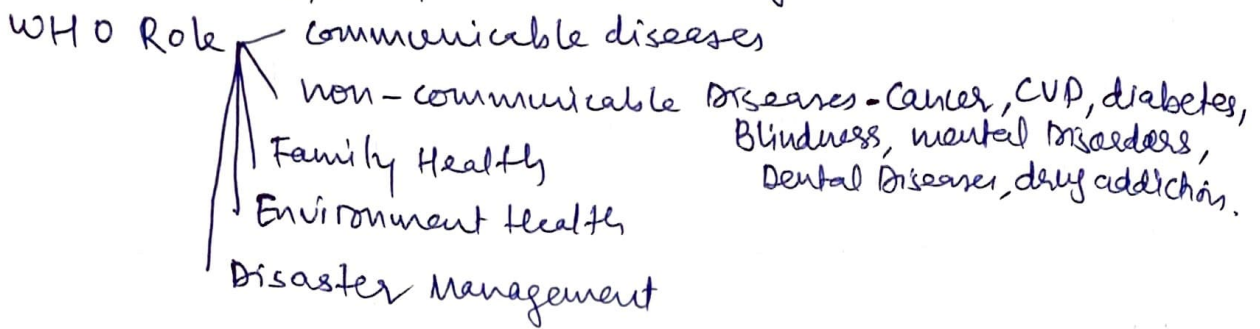 WHO Role communicable diseases
non-communicable Diseases - Cancer, CVD, diabetes,
Blindness, mental Disorders,
Family Health
Dental Diseases, drug addiction.
Environment Health
Disaster Management